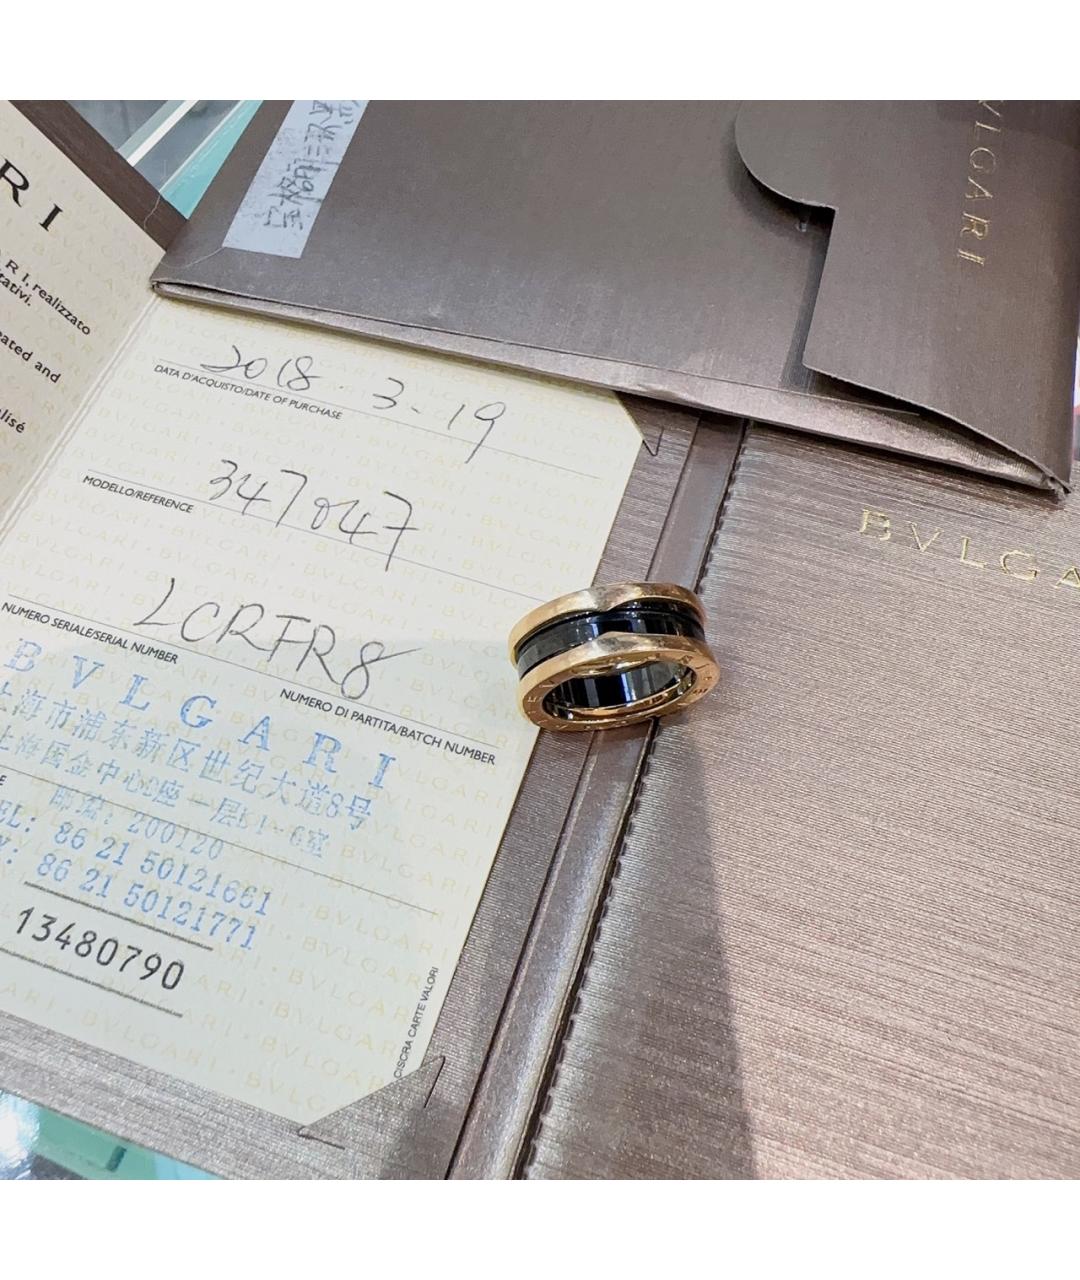 RI
RI, realizzato
tativi.
eated and
alisé
BVLGARI
BVLGA
2018. 3. 19
DATA D'ACQUISTO/DATE OF PURCHASE
347047
MODELLO/REFERENCE
LCRFR8
NUMERO SERIALE/SERIAL NUMBER
NUMERO DI PARTITA/BATCH NUMBER
BVLGARI
上海市浦东新区世纪大道8号
上海国金中心D座一层
邮编: 200120
EL: 86 21 50121661
86 21 50121771
13480790
DISCRA CARTE VALORI